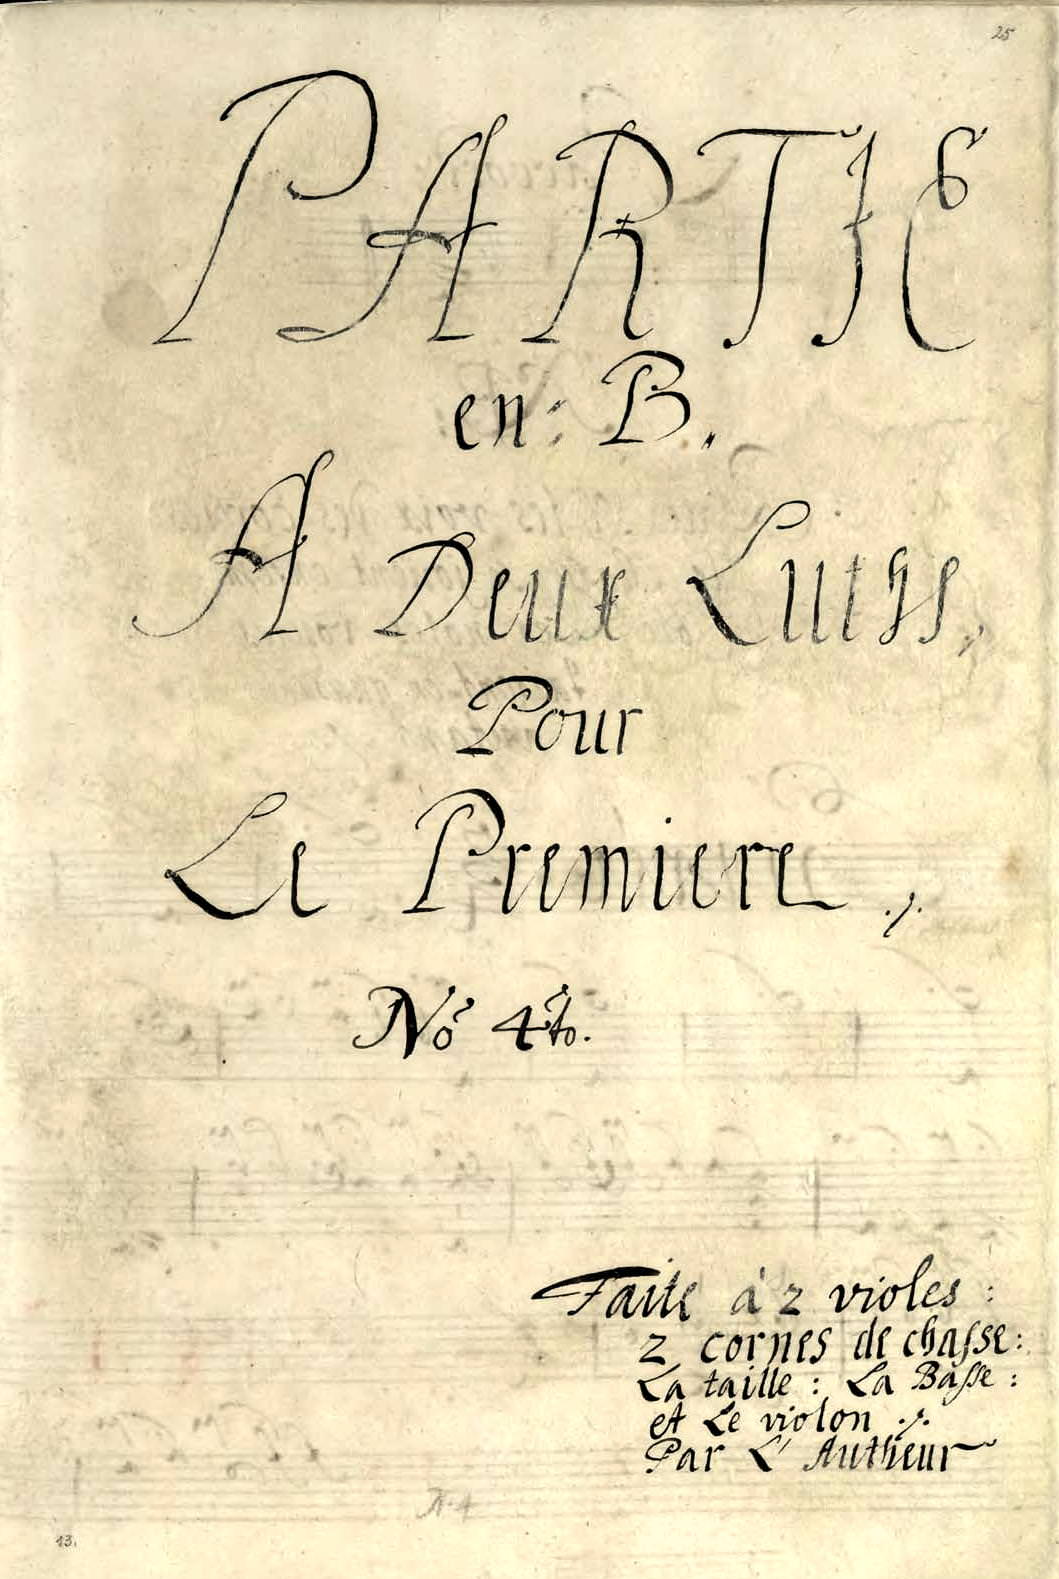 25
PARTIE
en: B.
A Deux Luths,
Pour
Le Premiere ./.
No 4to.
Faite à 2 violes :
2 cornes de chasse :
La taille : La Basse :
et Le violon ./.
Par L' Autheur
13.